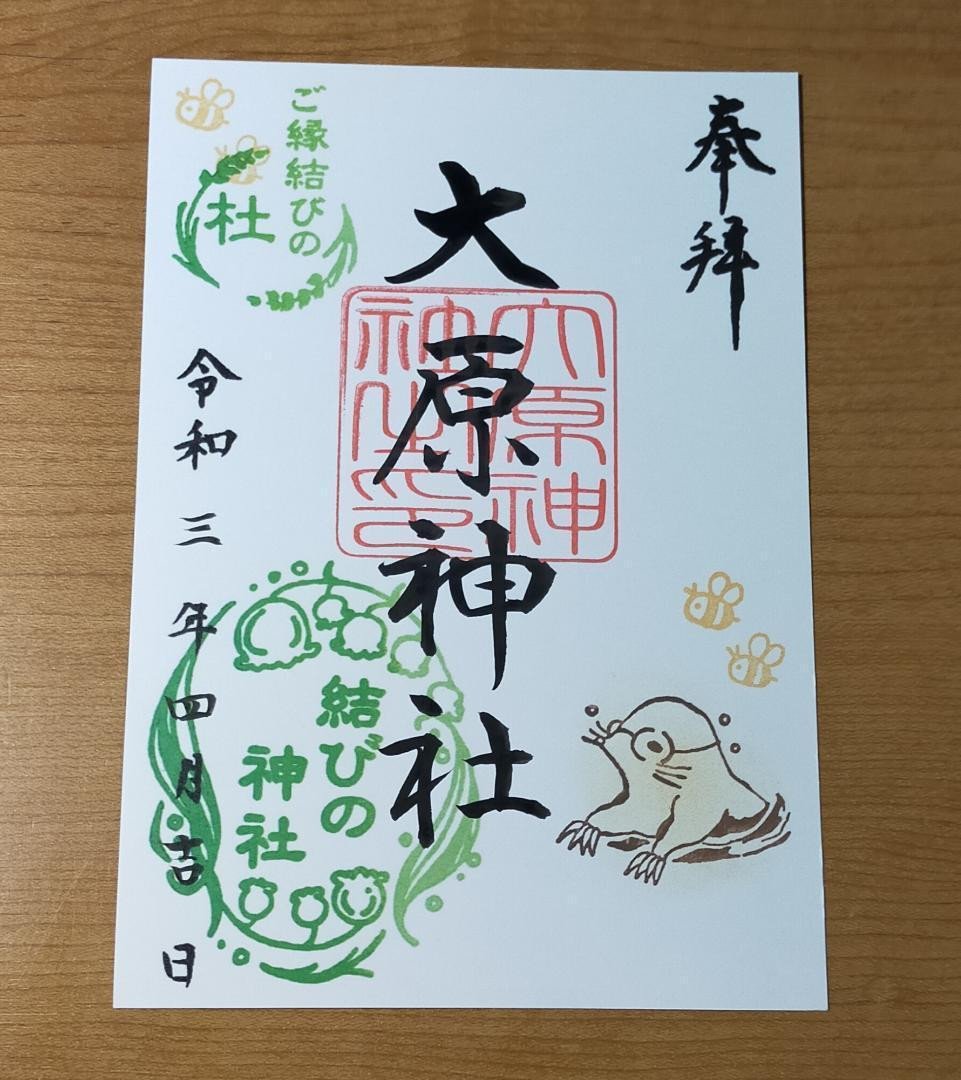 奉拝
大原神社
大原神
社之印
ご縁結びの
杜
結びの
神社
令和三年四月吉日